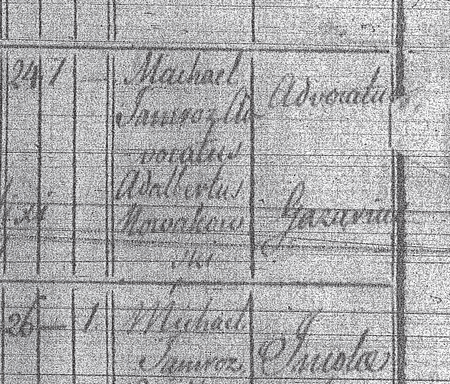 24 1 Machael
Jamroz Ad
vocatus
Advocatus
Adalbertus
Nowakows
ski
26 — 1 Michael
Jamroz